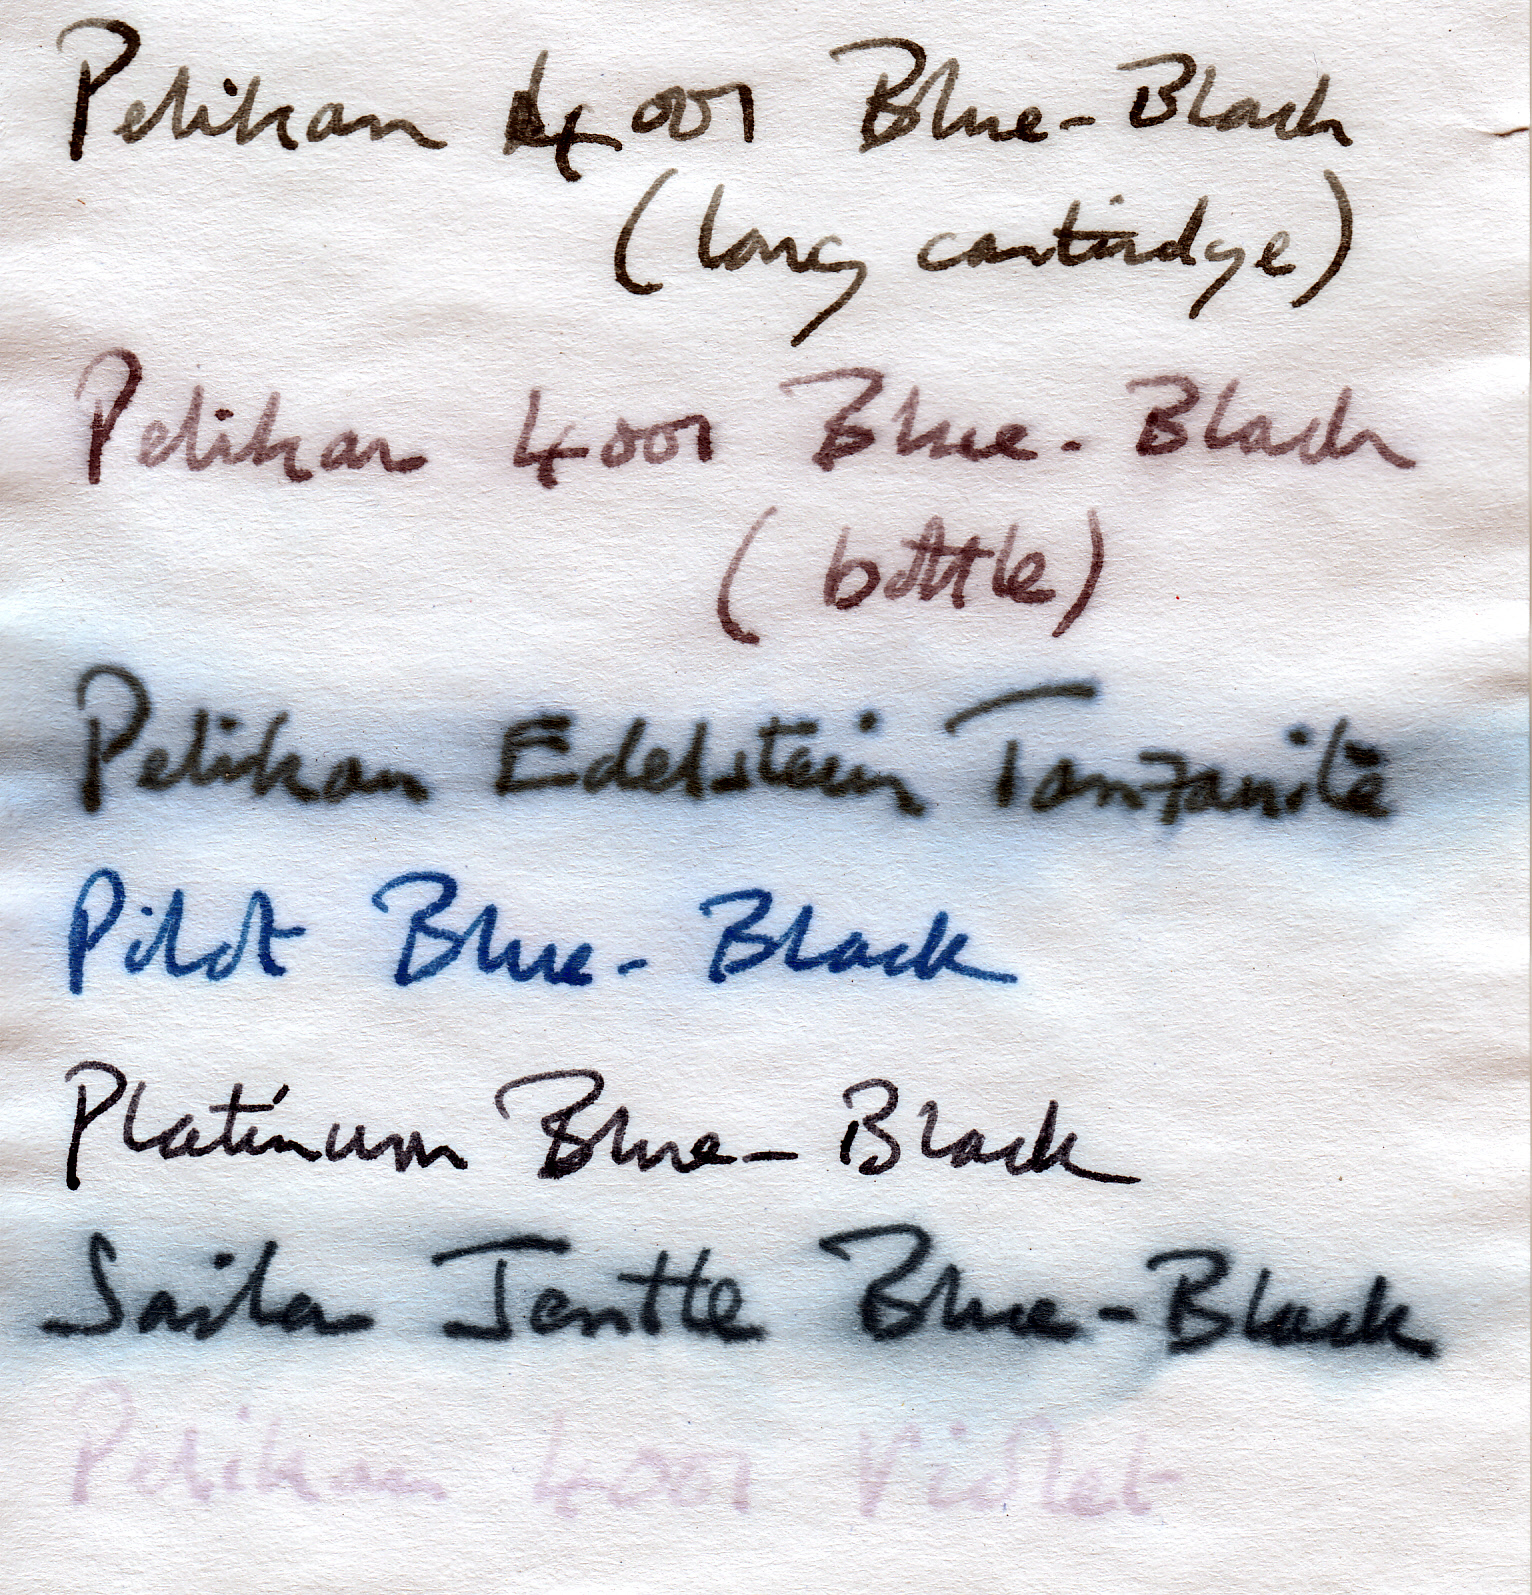 Pelikan 4001 Blue-Black
(long cartridge)
Pelikan 4001 Blue-Black
(bottle)
Pelikan Edelstein Tanzanite
Pilot Blue-Black
Platinum Blue-Black
Sailor Jentle Blue-Black
Pelikan 4001 Violet